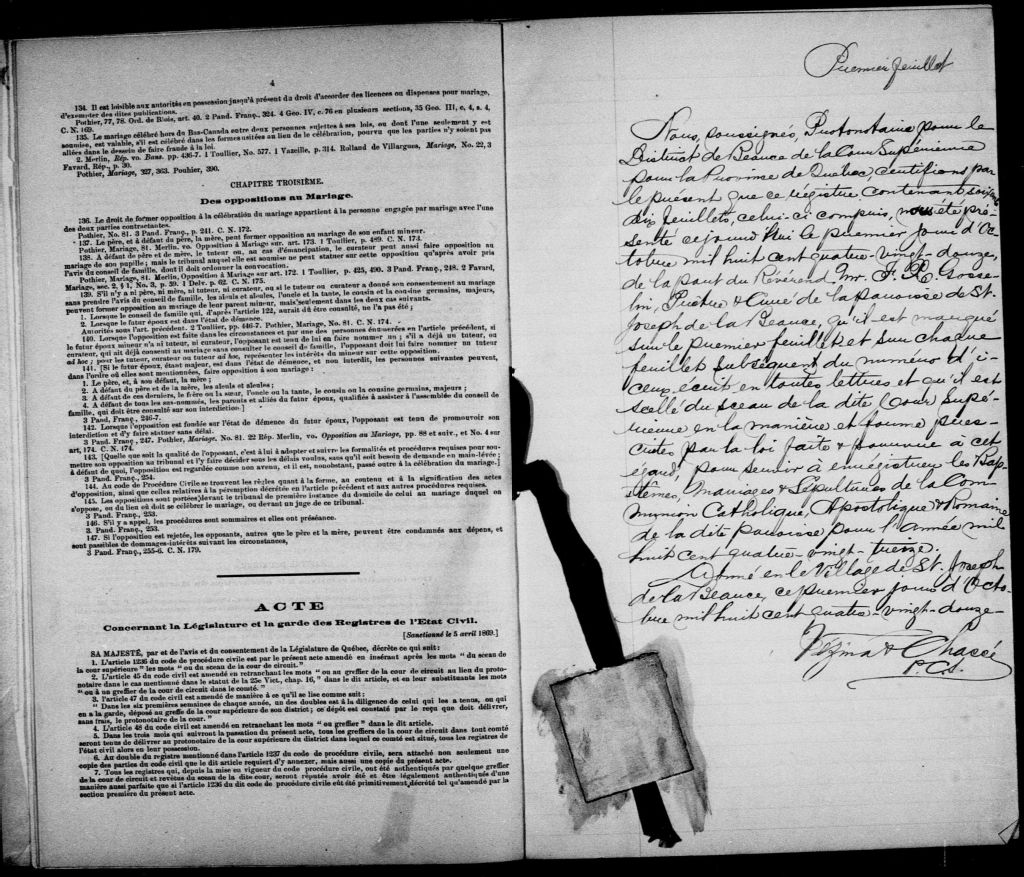 4
134. Il est loisible aux autorités en possession jusqu'à présent du droit d'accorder des licences ou dispenses pour mariage,
d'exempter des dites publications.
Pothier, 77, 78. Ord. de Blois, art. 40. 2 Pand. Franç., 324. 4 Geo. IV, c. 76 en plusieurs sections, 35 Geo. III, c, 4, s. 4,
C. N. 169.
135. Le mariage célébré hors du Bas-Canada entre deux personnes sujettes à ses lois, ou dont l'une seulement y est
soumise, est valable, s'il est célébré dans les formes usitées au lieu de la célébration, pourvu que les parties n'y soient pas
allées dans le dessein de faire fraude à la loi.
2. Merlin, Rép. vo. Bans. pp. 436-7. 1 Toullier, No. 577. 1 Vazeille, p. 314. Rolland de Villargues, Mariage, No. 22, 3
Favard, Rép., p. 30.
Pothier, Mariage, 327, 363. Pouhier, 390.
CHAPITRE TROISIÈME.
Des oppositions au Mariage.
136. Le droit de former opposition à la célébration du mariage appartient à la personne engagée par mariage avec l'une
des deux parties contractantes.
Pothier, No. 81. 3 Pand. Franç., p. 241. C. N. 172.
137. Le père, et à défaut du père, la mère, peut former opposition au mariage de son enfant mineur.
Pothier, Mariage, 81. Merlin, vo. Opposition à Mariage sur art. 173. 1 Toullier, p. 489. C. N. 174.
138. A défaut de père et de mère, le tuteur ou, au cas d'émancipation, le curateur peut aussi faire opposition au
mariage de son pupille; mais le tribunal auquel elle est soumise ne peut statuer sur cette opposition qu'après avoir pris
l'avis du conseil de famille, dont il doit ordonner la convocation.
Pothier, Mariage, 81. Merlin, Opposition à Mariage sur art. 172. 1 Toullier, p. 425, 490. 3 Pand. Franç., 248. 2 Favard,
Mariage, sec. 2, § 1, No. 3, p. 59. 1 Delv. p. 62. C. N. 175.
139. S'il n'y a ni père, ni mère, ni tuteur, ni curateur, ou si le tuteur ou curateur a donné son consentement au mariage
sans prendre l'avis du conseil de famille, les aieuls et aieules, l'oncle et la tante, le cousin et la cousine germains, majeurs,
peuvent former opposition au mariage de leur parent mineur, mais seulement dans les deux cas suivants.
1. Lorsque le conseil de famille qui, d'après l'article 122, aurait dû être consulté, ne l'a pas été;
2. Lorsque le futur époux est dans l'état de démence.
Autorités sous l'art. précédent. 2 Toullier, pp. 446-7. Pothier, Mariage, No. 81. C. N. 174.
140. Lorsque l'opposition est faite dans les circonstances et par une des personnes énumérées en l'article précédent, si
le futur époux mineur n'a ni tuteur, ni curateur, l'opposant est tenu de lui en faire nommer un; s'il a déjà un tuteur, ou
curateur, qui ait déjà consenti au mariage sans consulter le conseil de famille, l'opposant doit lui faire nommer un tuteur
ad hoc; pour les tuteur, curateur ou tuteur ad hoc, représenter les intérêts du mineur sur cette opposition.
141. [Si le futur époux, étant majeur, est dans l'état de démence, et non interdit, les personnes suivantes peuvent,
dans l'ordre où elles sont mentionnées, faire opposition à son mariage:
1. Le père, et, à son défaut, la mère;
2. A défaut du père et de la mère, les aieuls et aieules;
3. A défaut de ces derniers, le frère ou la sœur, l'oncle ou la tante, le cousin ou la cousine germains, majeurs;
4. A défaut de tous les sus-nommés, les parents et alliés du futur époux, qualifiés à assister à l'assemblée du conseil de
famille, qui doit être consulté sur son interdiction.]
3 Pand. Franç., 246-7.
142. Lorsque l'opposition est fondée sur l'état de démence du futur époux, l'opposant est tenu de promouvoir son
interdiction et d'y faire statuer sans délai.
3 Pand. Franç., 247. Pothier, Mariage, No. 81. 22 Rép. Merlin, vo. Opposition au Mariage, pp. 88 et suiv., et No. 4 sur
art, 174. C. N. 174.
143. [Quelle que soit la qualité de l'opposant, c'est à lui à adopter et suivre les formalités et procédures requises pour sou-
mettre son opposition au tribunal et l'y faire décider sous les délais voulus, sans qu'il soit besoin de demande en main-levée;
à défaut de quoi, l'opposition est regardée comme non avenu, et il est, nonobstant, passé outre à la célébration du mariage.]
3 Pand. Franç., 254.
144. Au code de Procédure Civile se trouvent les règles quant à la forme, au contenu et à la signification des actes
d'opposition, ainsi que celles relatives à la péremption décrétée en l'article précédent et aux autres procédures requises.
145. Les oppositions sont portées devant le tribunal de première instance du domicile de celui au mariage duquel on
s'oppose, ou du lieu où doit se célébrer le mariage, ou devant un juge de ce tribunal.
3 Pand. Franç., 253.
146. S'il y a appel, les procédures sont sommaires et elles ont préséance.
3. Pand. Franç., 253.
147. Si l'opposition est rejetée, les opposants, autres que le père et la mère, peuvent être condamnés aux dépens, et
sont passibles de dommages-intérêts suivant les circonstances,
3 Pand. Franç., 255-6. C. N. 179.
ACTE
Concernant la Législature et la garde des Registres de l'Etat Civil.
[Sanctionné le 5 avril 1869.]
SA MAJESTÉ, par et de l'avis et du consentement de la Législature de Québec, décrète ce qui suit:
1. L'article 1236 du code de procédure civile est par le présent acte amendé en insérant après les mots "du sceau de
la cour supérieure" les mots "ou du sceau de la cour de circuit."
2. L'article 45 du code civil est amendé en retranchant les mots "ou au greffier de la cour de circuit au lieu du proto-
notaire dans le cas mentionné dans le statut de la 25e Vict., chap. 16," dans le dit article, et en leur substituants les mots
"ou à un greffier de la cour de circuit dans le comté."
3. L'article 47 du code civil est amendé de manière à ce qu'il se lise comme suit:
"Dans les six premières semaines de chaque année, un des doubles est à la diligence de celui qui les a tenus, ou qui
en a la garde, déposé au greffe de la cour supérieure de son district; ce dépôt est constaté par le reçu que doit délivrer,
sans frais, le protonotaire de la cour."
4. L'article 48 du code civil est amendé en retranchant les mots "ou greffier" dans le dit article.
5. Dans les trois mois qui suivront la passation du présent acte, tous les greffiers de la cour de circuit dans tout comté
seront tenus de délivrer au protonotaire de la cour supérieure du district dans lequel ce comté est situé, tous les registres de
l'état civil alors en leur possession.
6. Au double du registre mentionné dans l'article 1237 du code de procédure civile, sera attaché non seulement une
copie des parties du code civil que le dit article requiert d'y annexer, mais aussi une copie du présent acte.
7. Tous les registres qui, depuis la mise en vigueur du code de procédure civile, ont été authentiqués par quelque greffier
de la cour de circuit et revêtus du sceau de la dite cour, seront réputés avoir été et être légalement authentiqués d'une
manière aussi parfaite que si l'article 1236 du dit code de procédure civile eût été primitivement décrété tel qu'amendé par la
section première du présent acte.
Premier feuillet
Nous, soussignés, Protonotaire pour le
District de Beauce de la Cour Supérieure
pour la Province de Québec, certifions par
le présent que ce registre contenant soixante
dix feuillets, celui-ci compris, nous été pré-
senté ce jourd'hui le premier jour d'Oc-
tobre mil huit cent quatre-vingt-douze,
de la part du Révérend Mr. F. X. Gosse-
lin, Prêtre & Curé de la paroisse de St.
Joseph de la Beauce, qu'il est marqué
sur le premier feuillet et sur chaque
feuillet subséquent du numéro d'i-
ceux, écrit en toutes lettres et qu'il est
scellé du sceau de la dite Cour Supé-
rieure en la manière et forme pres-
crites par la loi faite & pourvue à cet
égard, pour servir à enregistrer les Bap-
têmes, Mariages & Sépultures de la Com-
munion Catholique, Apostolique & Romaine
de la dite paroisse pour l'année mil
huit cent quatre-vingt-treize.
Donné en le Village de St. Joseph
de la Beauce, ce premier jour d'Octo-
bre mil huit cent quatre-vingt-douze-
Vézina & Chassé
P. C. S.